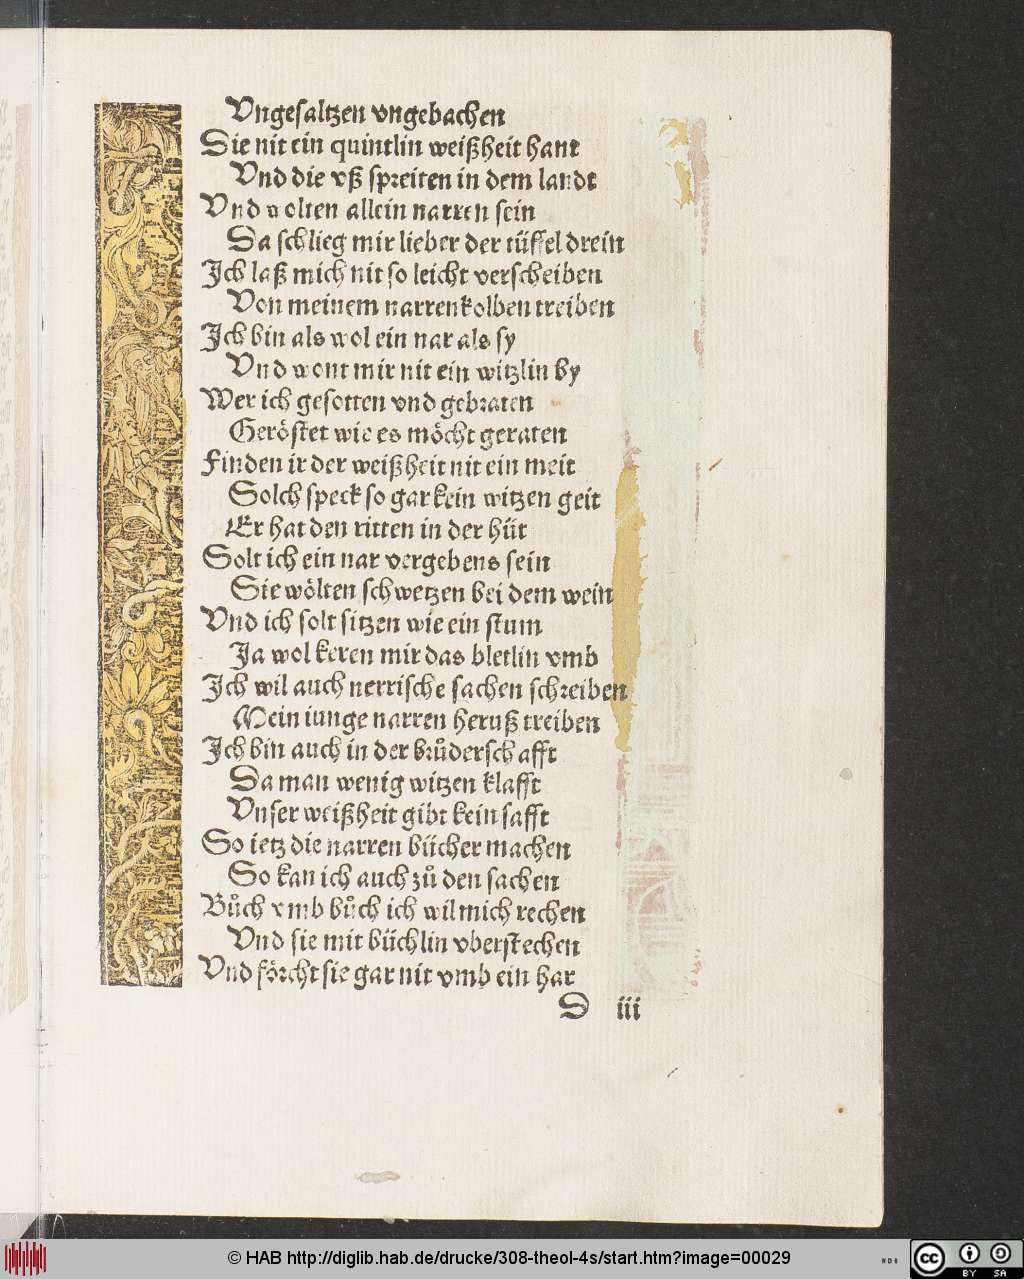 Vngesaltzen vngebachen
Sie nit ein quintlin weißheit hant
Vnd die vß spreiten in dem landt
Vnd wolten allein narren sein
Da schlieg mir lieber der tüffel drein
Ich laß mich nit so leicht verscheiben
Von meinem narrenkolben treiben
Ich bin als wol ein nar als sy
Vnd wont mir nit ein witzlin by
Wer ich gesotten vnd gebraten
Geröstet wie es möcht geraten
Finden ir der weißheit nit ein meit
Solch speck so gar kein witzen geit
Er hat den ritten in der hüt
Solt ich ein nar vergebens sein
Sie wölten schwetzen bei dem wein
Vnd ich solt sitzen wie ein stum
Ja wol keren mir das bletlin vmb
Ich wil auch nerrische sachen schreiben
Mein iunge narren heruß treiben
Ich bin auch in der brůderschafft
Da man wenig witzen klafft
Vnser weißheit gibt kein safft
So ietz die narren bücher machen
So kan ich auch zů den sachen
Bůch vmb bůch ich wil mich rechen
Vnd sie mit büchlin vberstechen
Vnd förcht sie gar nit vmb ein har
D iii
© HAB http://diglib.hab.de/drucke/308-theol-4s/start.htm?image=00029
WDB
cc BY SA